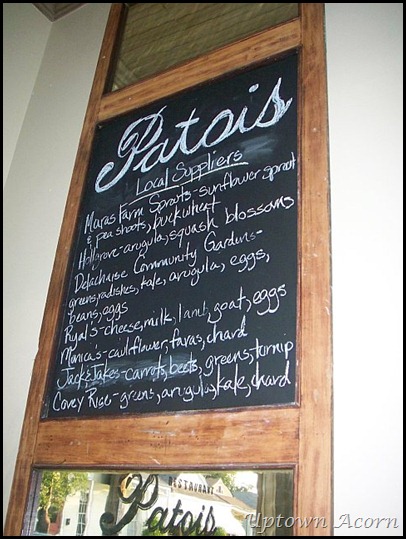 Patois
Local Suppliers
Maras Farm Sprouts-sunflower sprout
& pea shoots, buckwheat
Hollgrove-arugula, squash blossoms
Delachaise Community Gardens-
greens, radishes, kale, arugula, eggs,
beans, eggs
Ryal's-cheese, milk, lamb, goat, eggs
Monica's-cauliflower, favas, chard
Jack&Jakes-carrots, beets, greens, turnip
Covey Rise-greens, arugula, kale, chard
RESTAURANT
Patois
Uptown Acorn